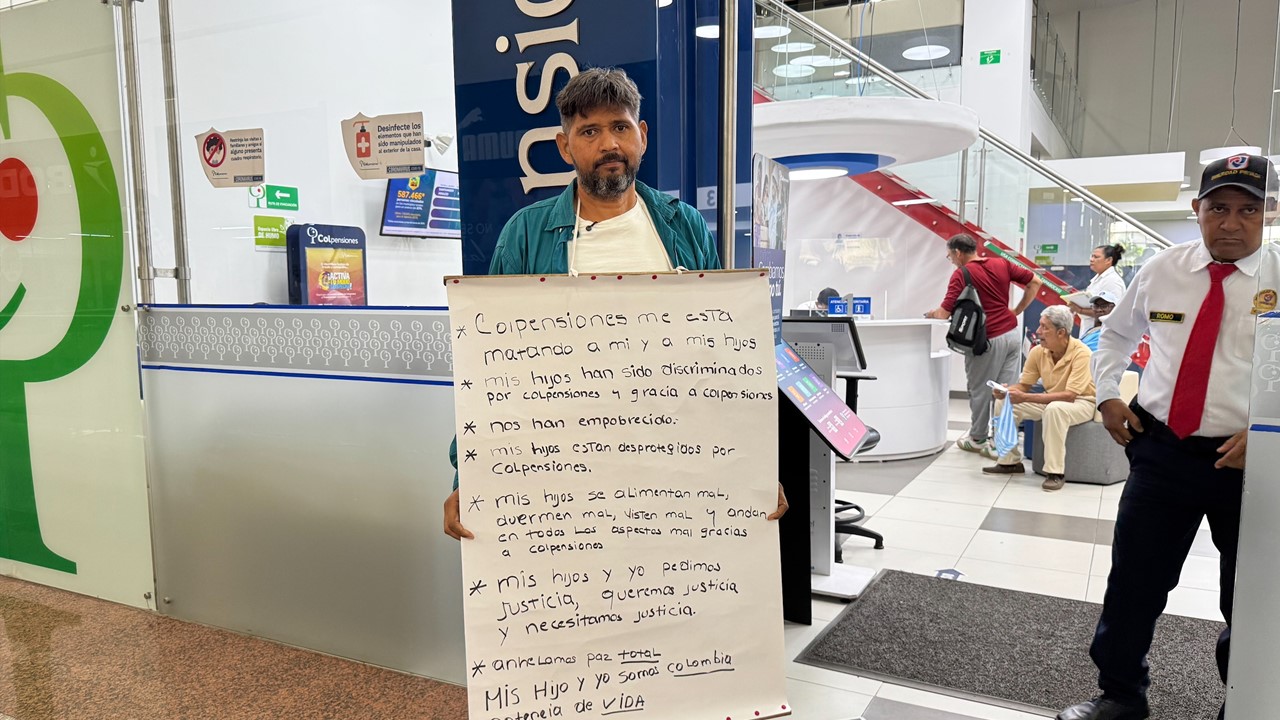 nsio
Restrinja las visitas a
familiares y amigos si
alguno presenta
cuadro respiratorio.
Desinfecte los
elementos que han
sido manipulados
al exterior de la casa.
587.466*
RUTA DE EVACUACIÓN
Espacio libre
DE HUMO
Colpensiones
ACTIVA
3
* Colpensiones me esta
matando a mi y a mis hijos
* mis hijos han sido discriminados
por colpensiones y gracia a colpensiones
* nos han empobrecido.
* mis hijos estan desprotegidos por
colpensiones.
* mis hijos se alimentan mal,
duermen mal, visten mal y andan
en todos los aspectos mal gracias
a colpensiones
* mis hijos y yo pedimos
justicia, queremos justicia
y necesitamos justicia.
* anhelamos paz total
Mis Hijo y yo somos colombia
potencia de VIDA
ROMO